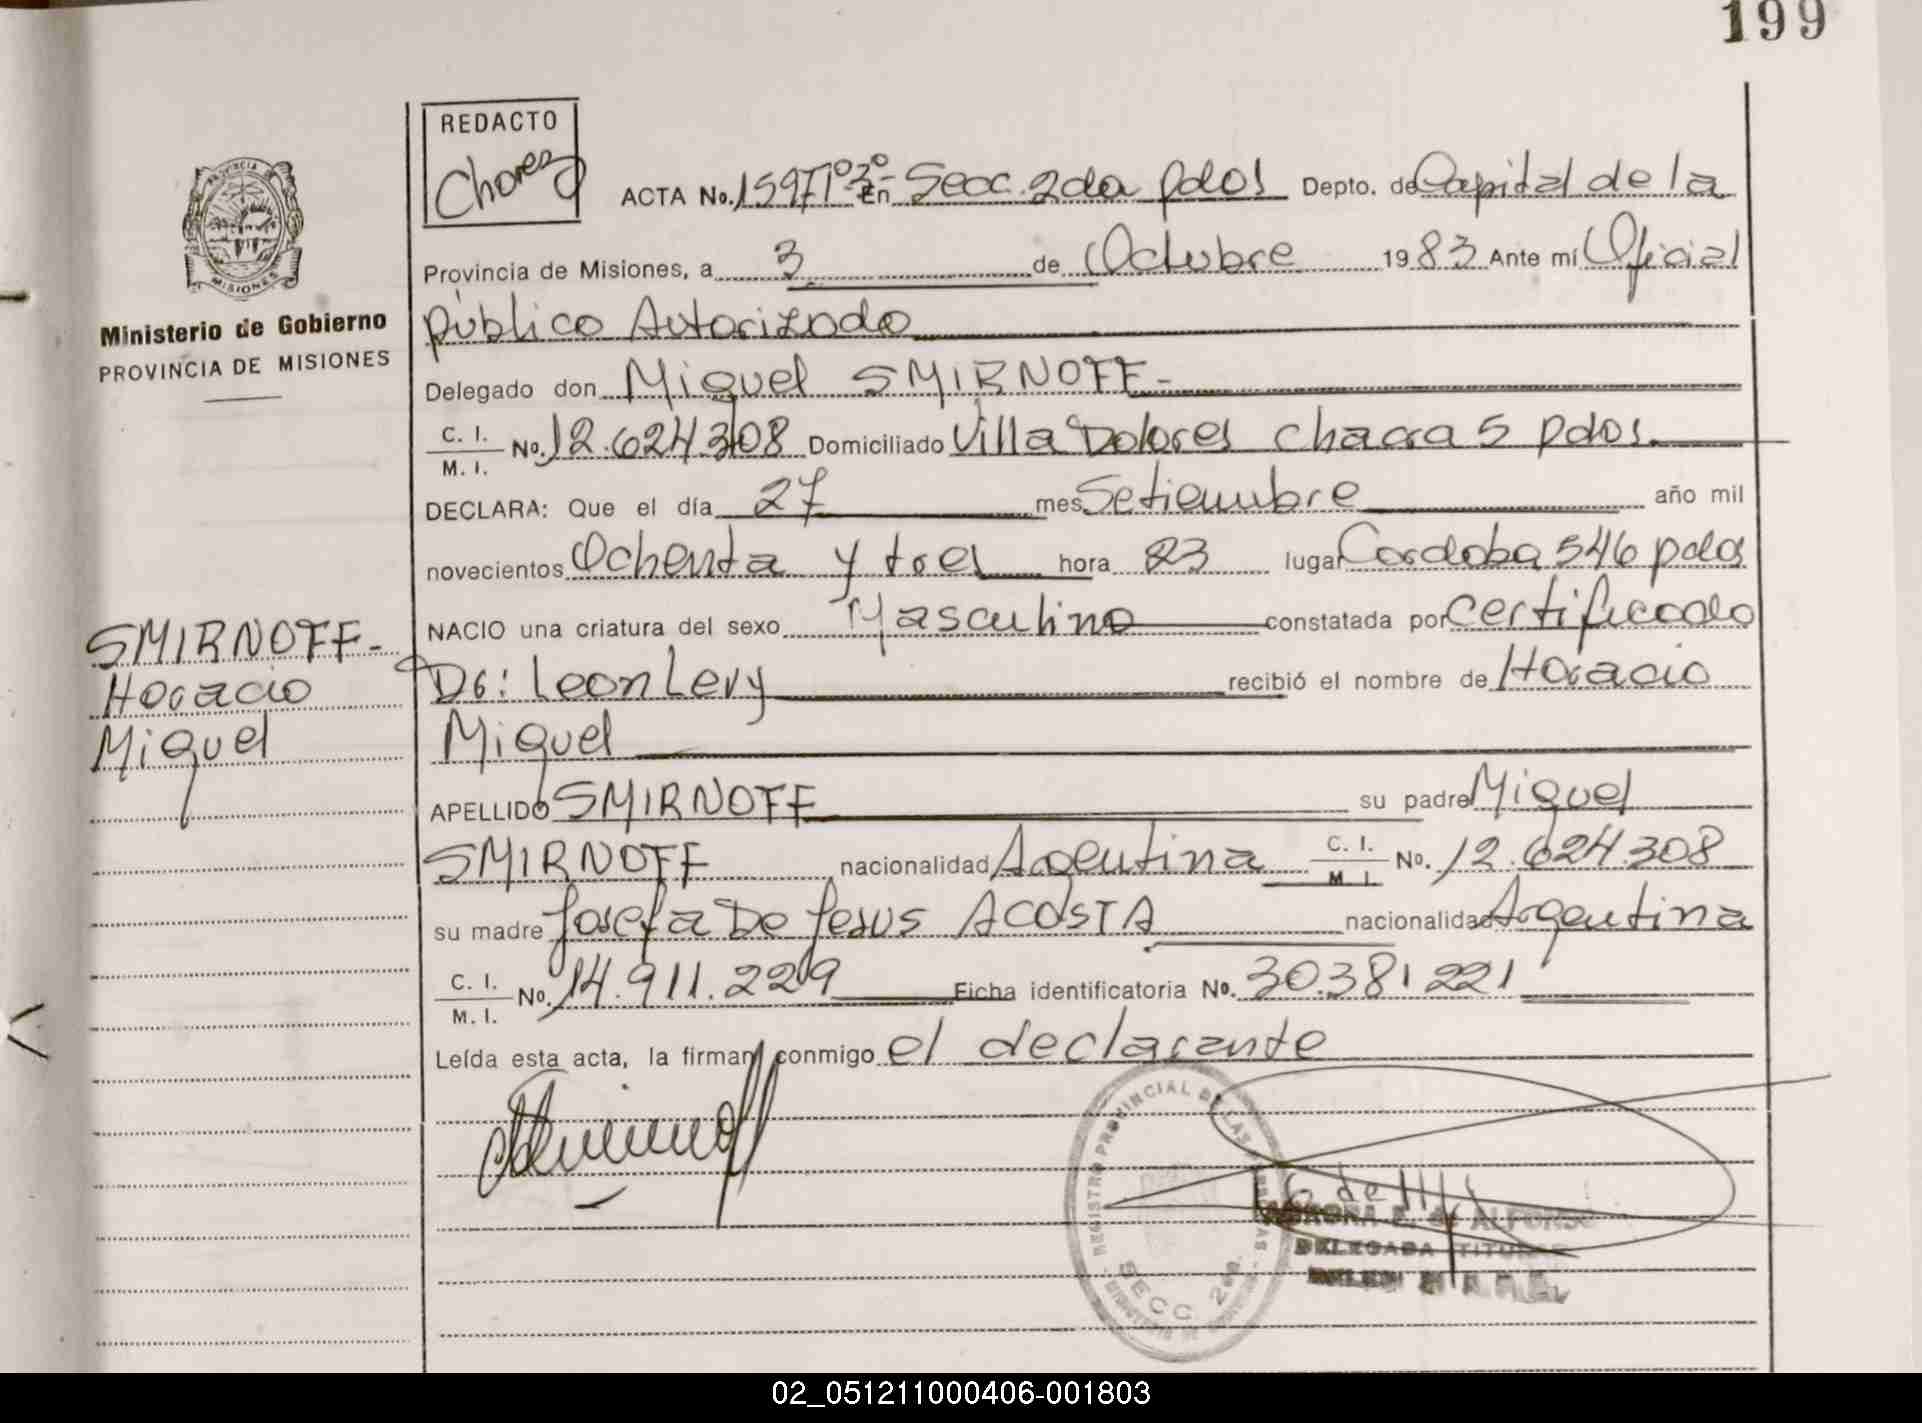 199
REDACTO
Chavez
ACTA No. 1597 Tº 3º En Secc. 2da Pdos Depto. de Capital de la
Provincia de Misiones, a 3 de Octubre 1983 Ante mí Oficial
Público Autorizado
Delegado don Miguel SMIRNOFF-
C. I.
M. I.
No. 12.624.308 Domiciliado Villa Dolores Chacra 5 Pdos.
DECLARA: Que el día 27 mes Setiembre año mil
novecientos Ochenta y tres hora 23 lugar Cordoba 546 pdos
NACIO una criatura del sexo Masculino constatada por Certificado
Dr: Leon Levy recibió el nombre de Horacio
Miguel
APELLIDO SMIRNOFF su padre Miguel
SMIRNOFF nacionalidad Argentina C. I. M. I. No. 12.624.308
su madre Josefa De Jesus ACOSTA nacionalidad Argentina
C. I.
M. I.
No. 14.911.229 Ficha identificatoria No. 30.381.221
Leída esta acta, la firman conmigo el declarante
PROVINCIA DE
MISIONES
Ministerio de Gobierno
PROVINCIA DE MISIONES
SMIRNOFF-
Horacio
Miguel
REGISTRO PROVINCIAL DE LAS PERSONAS
SECC. 2da.
E. de ALFONSO
DELEGADA TITULAR
02_051211000406-001803